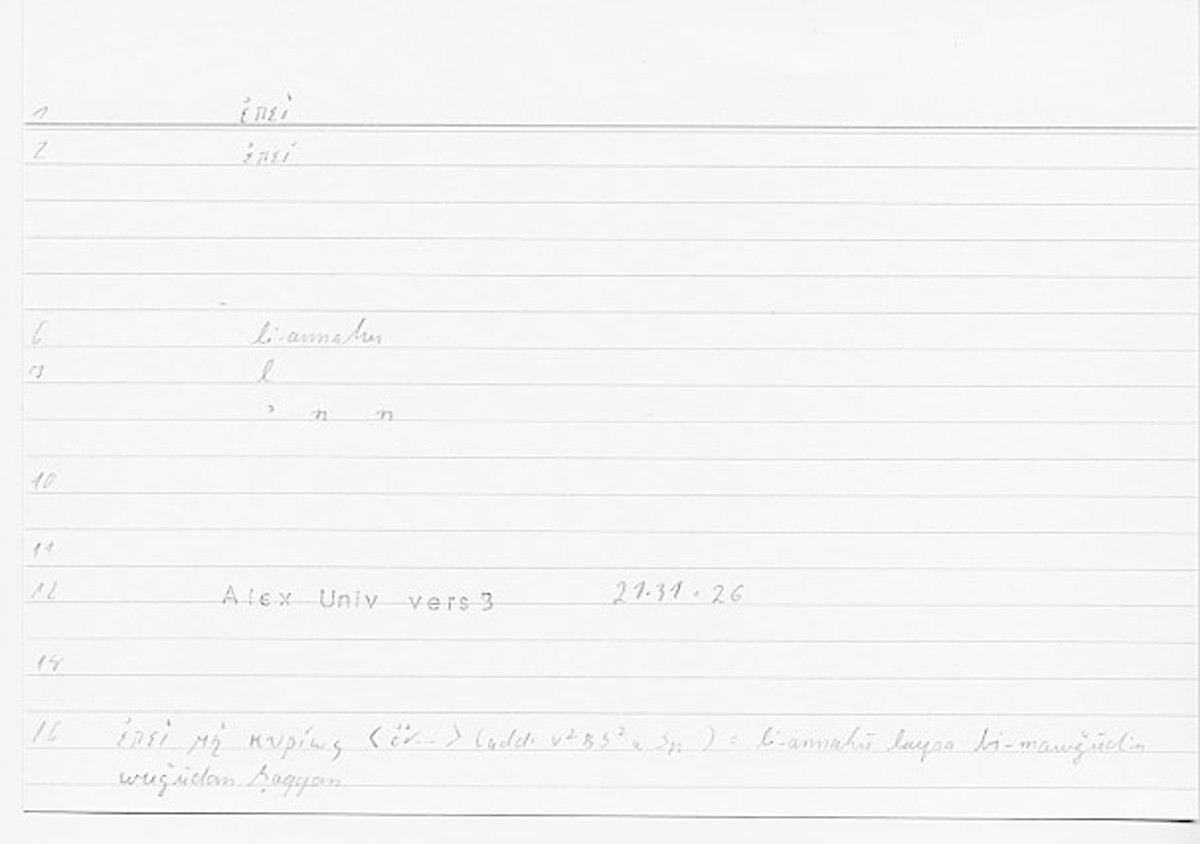 1 ἐπεὶ
2 ἐπεί
6 li-annahu
l
ʾ n n
10
11
12 Alex Univ vers 3 21.31 · 26
16 ἐπεὶ μὴ κυρίως < > (add. v² B S² ) = li-annahū laysa bi-mawǧūdin
wuǧūdan ḥaqqan